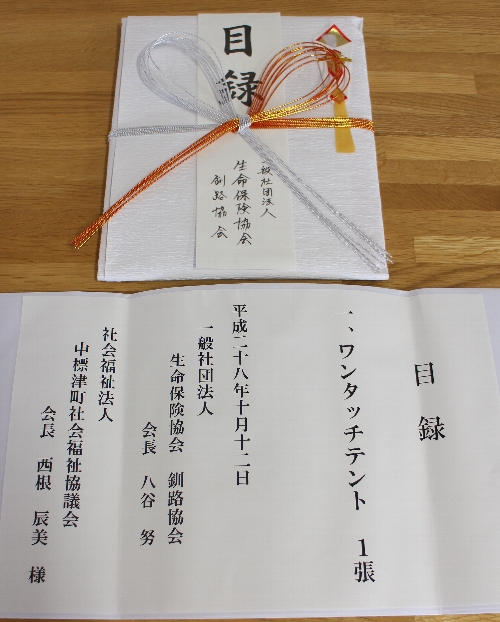 目録
一般社団法人
生命保険協会
釧路協会
目録
一、ワンタッチテント 1張
平成二十八年十月十二日
一般社団法人
生命保険協会 釧路協会
会長 八谷 努
社会福祉法人
中標津町社会福祉協議会
会長 西根 辰美 様